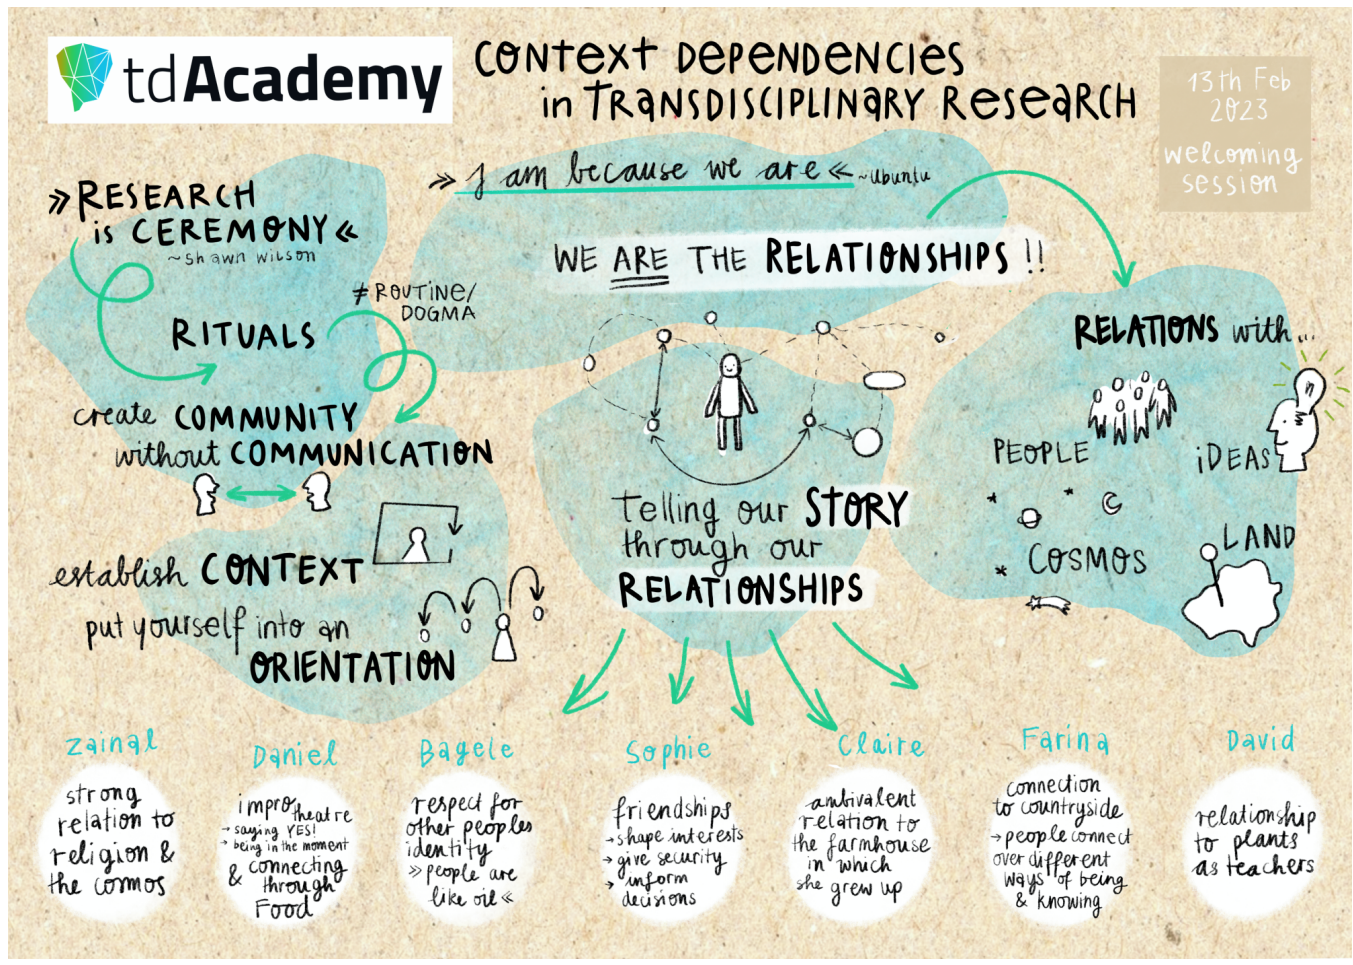 tdAcademy
CONTEXT DEPENDENCIES
in TRANSDISCIPLINARY RESEARCH
13th Feb
2023
welcoming
session
»RESEARCH
is CEREMONY«
~Shawn Wilson
» I am because we are « ~Ubuntu
WE ARE THE RELATIONSHIPS !!
≠ ROUTINE/
DOGMA
RITUALS
create COMMUNITY
without COMMUNICATION
establish CONTEXT
put yourself into an
ORIENTATION
Telling our STORY
through our
RELATIONSHIPS
RELATIONS with...
PEOPLE
iDEAS
COSMOS
LAND
Zainal
strong
relation to
religion &
the cosmos
Daniel
impro theatre
→ saying YES!
→ being in the moment
& connecting
through
Food
Bagele
respect for
other peoples
identity
»people are
like oil«
Sophie
friendships
→ shape interests
→ give security
→ inform
decisions
Claire
ambivalent
relation to
the farmhouse
in which
she grew up
Farina
connection
to countryside
→ people connect
over different
ways of being
& knowing
David
relationship
to plants
as teachers